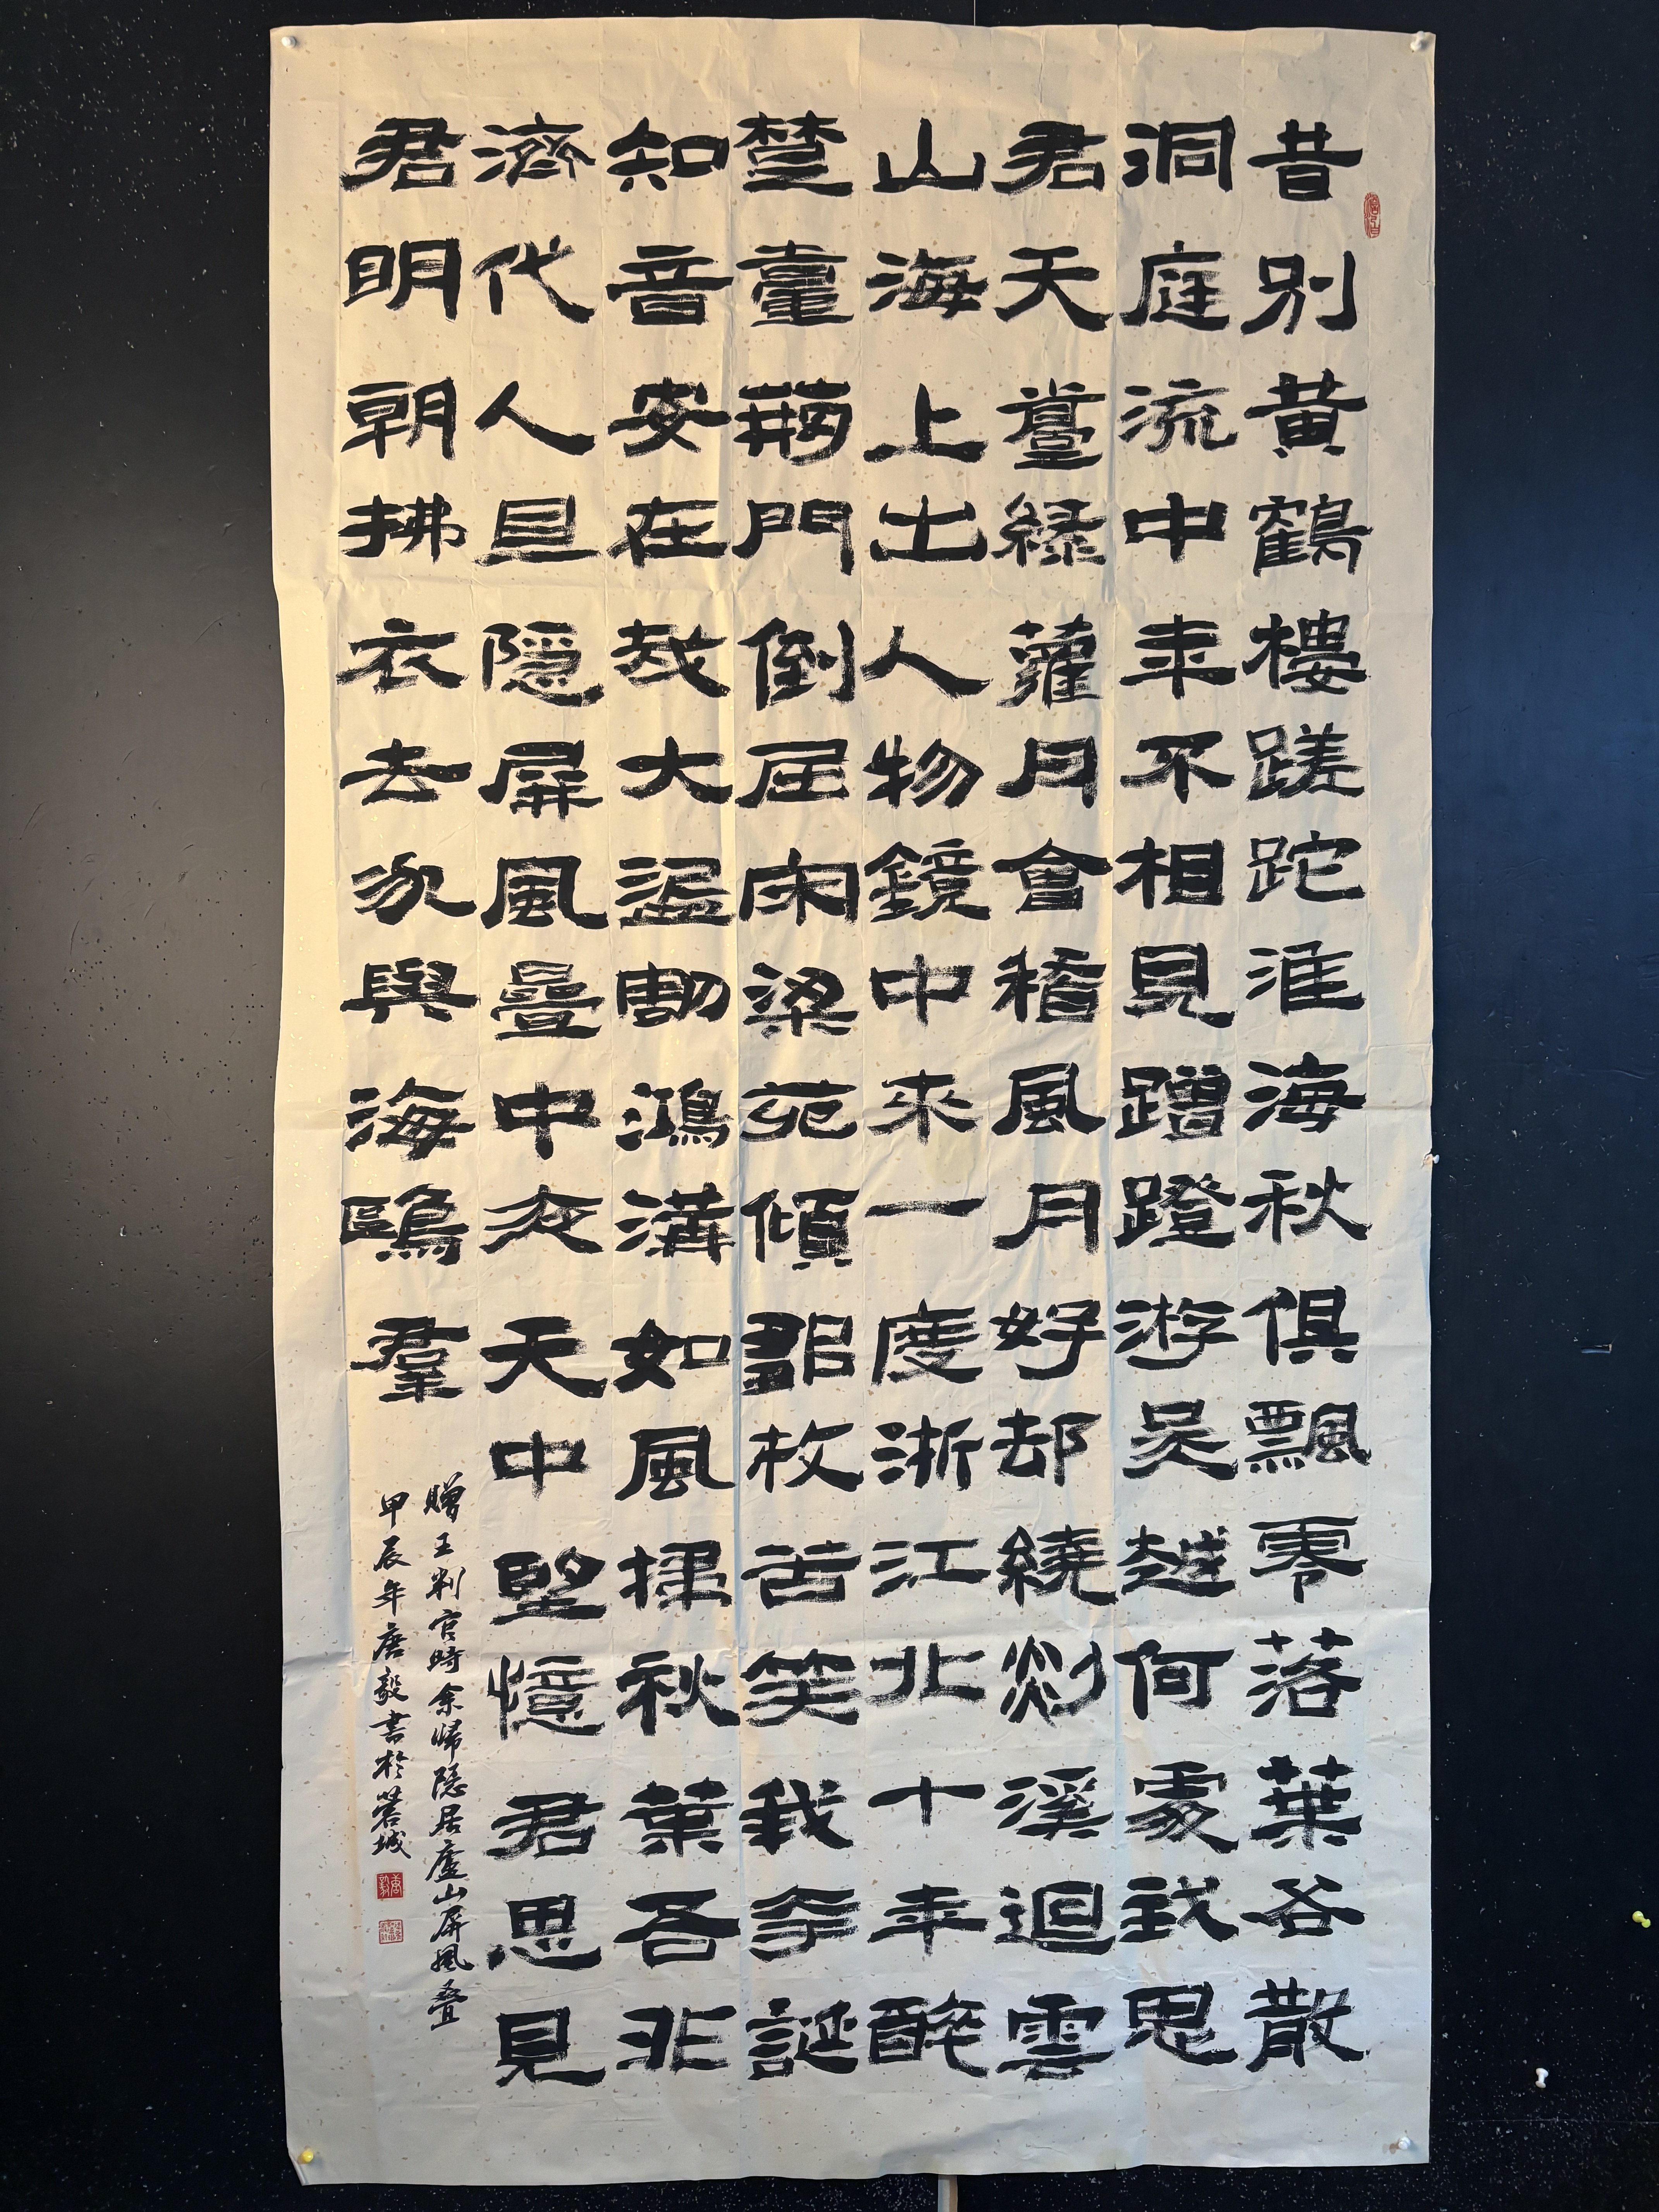 昔別黃鶴樓蹉跎淮海秋俱飄零落葉各散
洞庭流中年不相見蹭蹬游吳越何處我思
君天臺綠蘿月會稽風月好却繞剡溪迴雲
山海上出人物鏡中來一度浙江北十年醉
楚臺荊門倒屈宋梁苑傾鄒枚苦笑我夸誕
知音安在哉大盜割鴻溝如風掃秋葉吾非
濟代人且隱屏風疊中夜天中望憶君思見
君明朝拂衣去永與海鷗羣
贈王判官時余歸隱居廬山屏風叠
甲辰年唐毅書於蓉城
唐毅